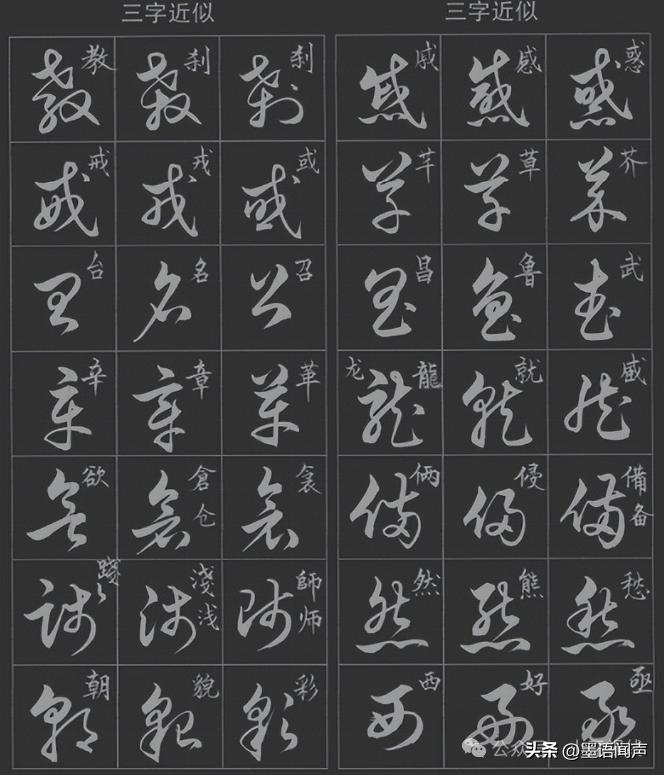 三字近似
教 刹 刹
戒 戎 或
台 名 召
辛 章 革
欲 倉仓 衮
踐 淺浅 師师
朝 貌 彩
三字近似
戚 感 惑
芊 草 芥
昌 鲁 武
龙龍 就 威
俩 侵 備备
然 熊 愁
西 好 亟
头条 @墨语闻声